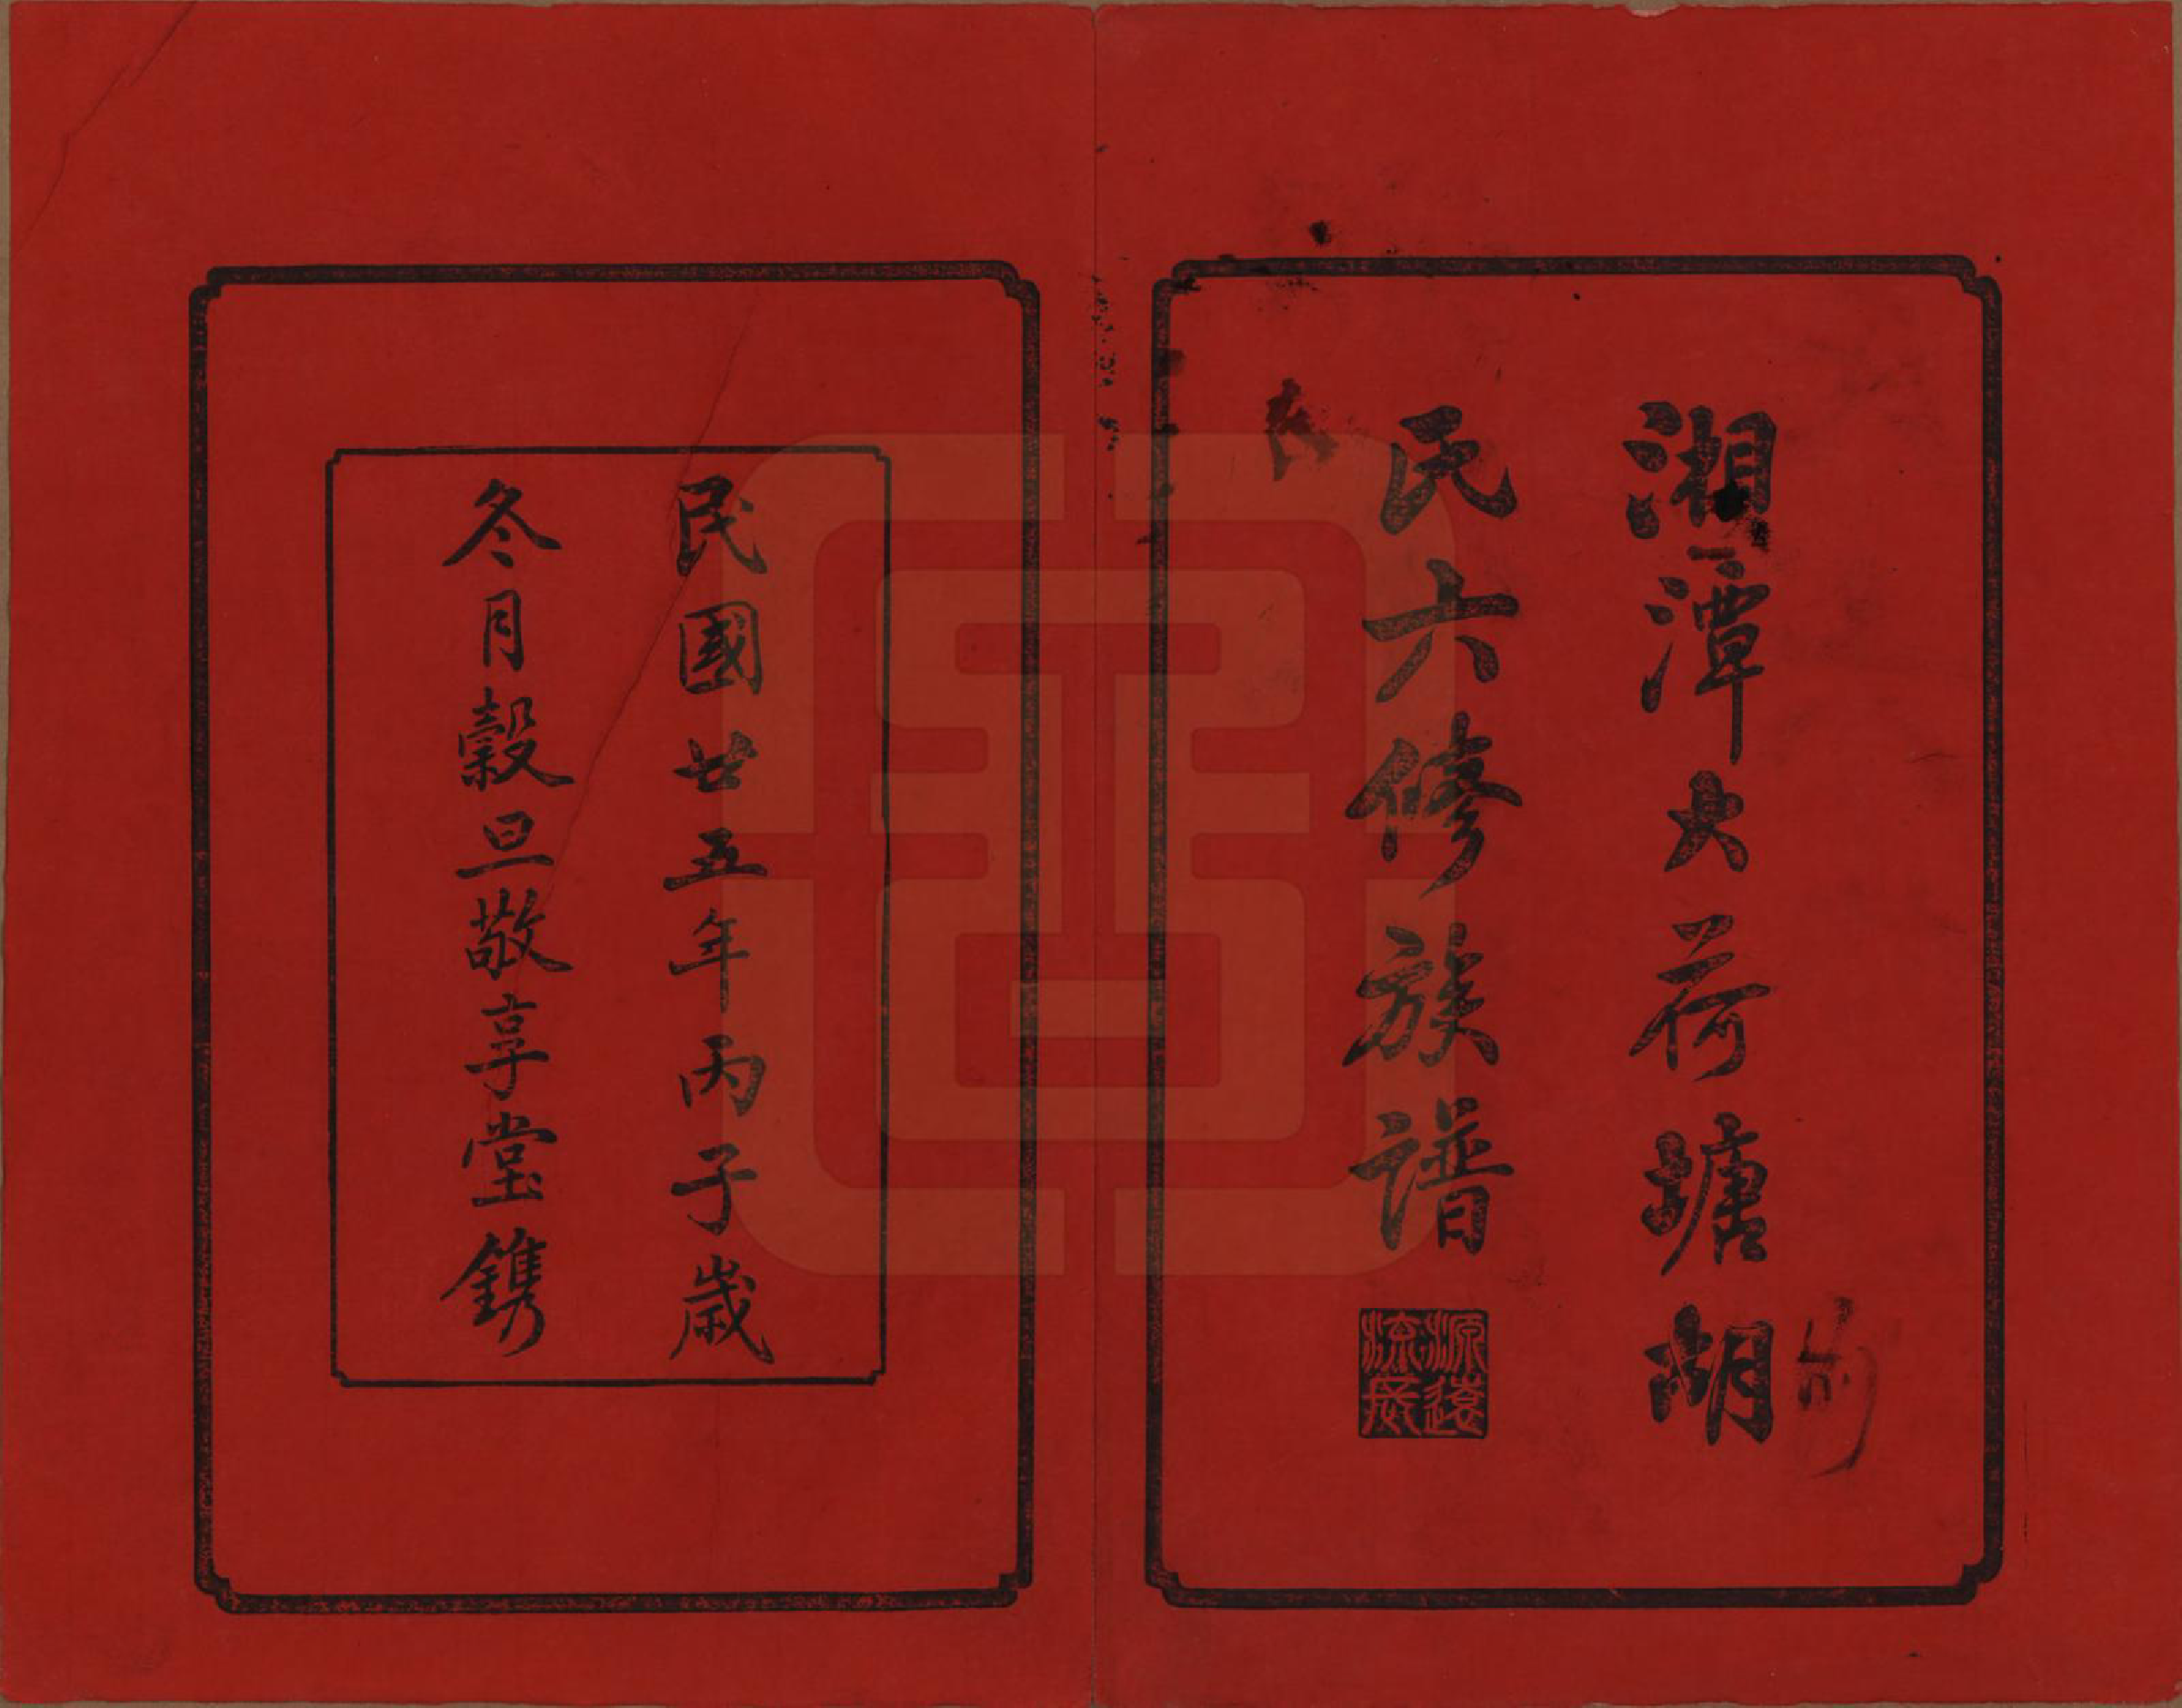 湘潭大荷塘胡
氏六修族譜
源遠
流長
民國廿五年丙子歲
冬月穀旦敬享堂鐫